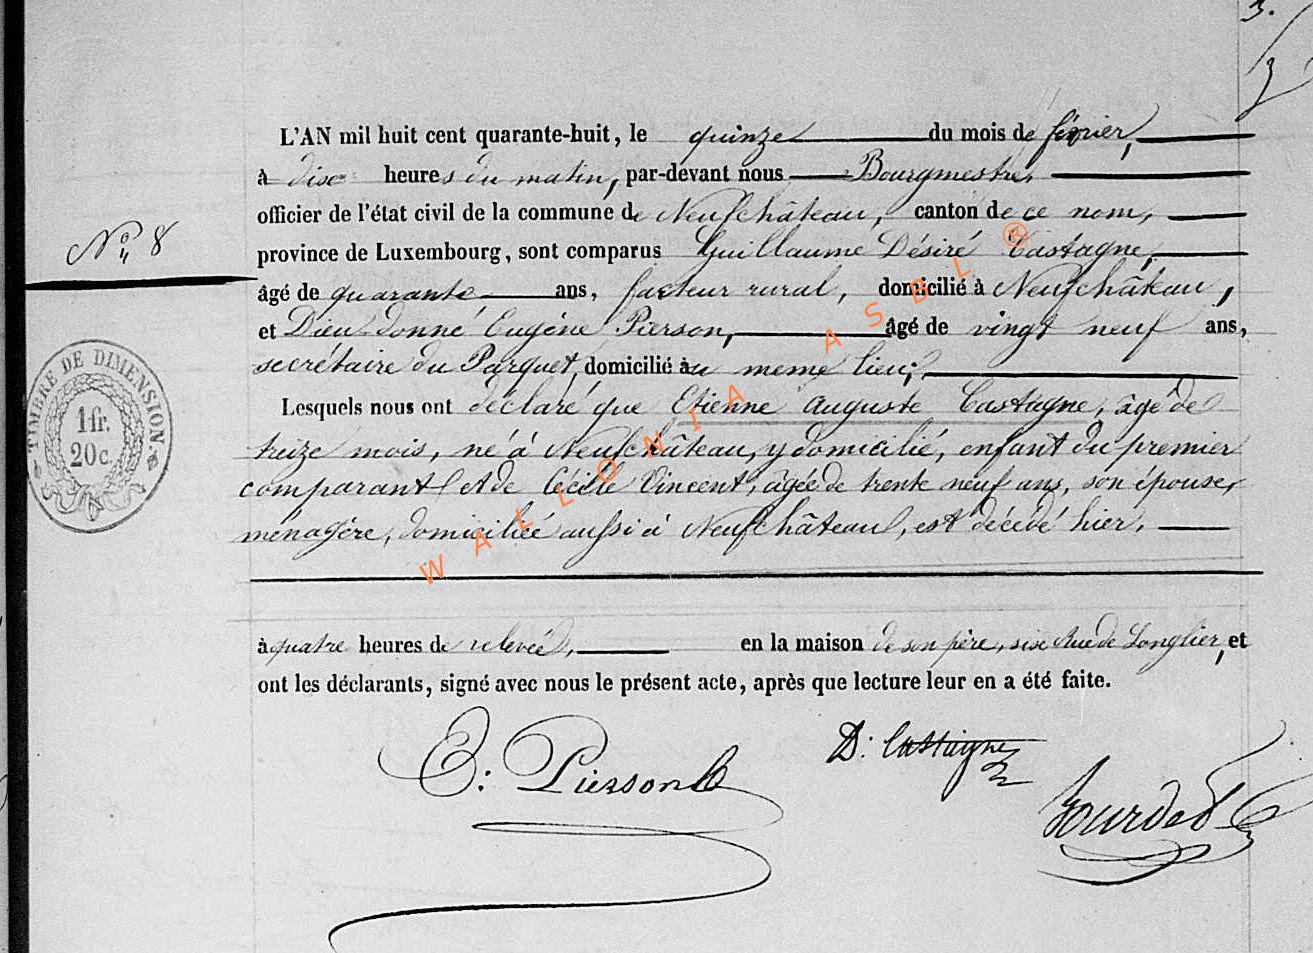 3.
L'AN mil huit cent quarante-huit, le quinze du mois de février,
à dix heures du matin, par-devant nous Bourgmestre,
officier de l'état civil de la commune de Neufchâteau, canton de ce nom,
N° 8
province de Luxembourg, sont comparus Guillaume Désiré Castagne,
âgé de quarante ans, facteur rural, domicilié à Neufchâteau,
et Dieu-donné Eugène Pierson, âgé de vingt neuf ans,
secrétaire du Parquet, domicilié au meme lieu;
Lesquels nous ont déclaré que Etienne Auguste Castagne, âgé de
treize mois, né à Neufchâteau, y domicilié, enfant du premier
comparant et de Cécile Vincent, âgée de trente neuf ans, son épouse,
ménagère, domiciliée aussi à Neufchâteau, est décédé hier,
à quatre heures de relevée, en la maison de son père, sise Rue de Longlier, et
ont les déclarants, signé avec nous le présent acte, après que lecture leur en a été faite.
TIMBRE DE DIMENSION.
1 fr.
20 c.
E: Pierson
D: Castagne
Bourdet
WALLONIA ASBL ®